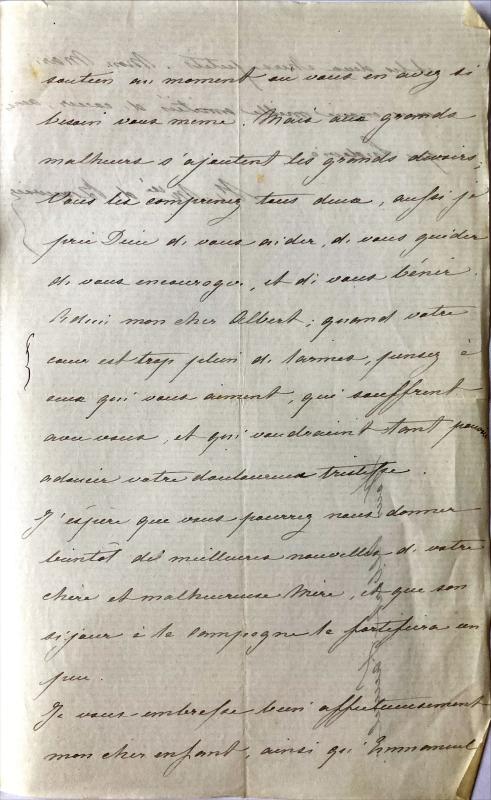 soutien au moment où vous en avez si
besoin vous même. Mais aux grands
malheurs s'ajoutent les grands devoirs;
Vous les comprenez tous deux, aussi je
prie Dieu de vous aider, de vous guider
de vous encourager, et de vous bénir.
Adieu mon cher Albert; quand votre
cœur est trop plein de larmes, pensez à
ceux qui vous aiment, qui souffrent
avec vous, et qui voudraient tant pouvoir
adoucir votre douloureuse tristesse.
J'éspère que vous pourrez nous donner
bientôt de meilleures nouvelles de votre
chère et malheureuse Mère, et que son
séjour à la campagne la fortifiera un
peu.
Je vous embrasse bien affectueusement
mon cher enfant, ainsi qu'Emmanuel